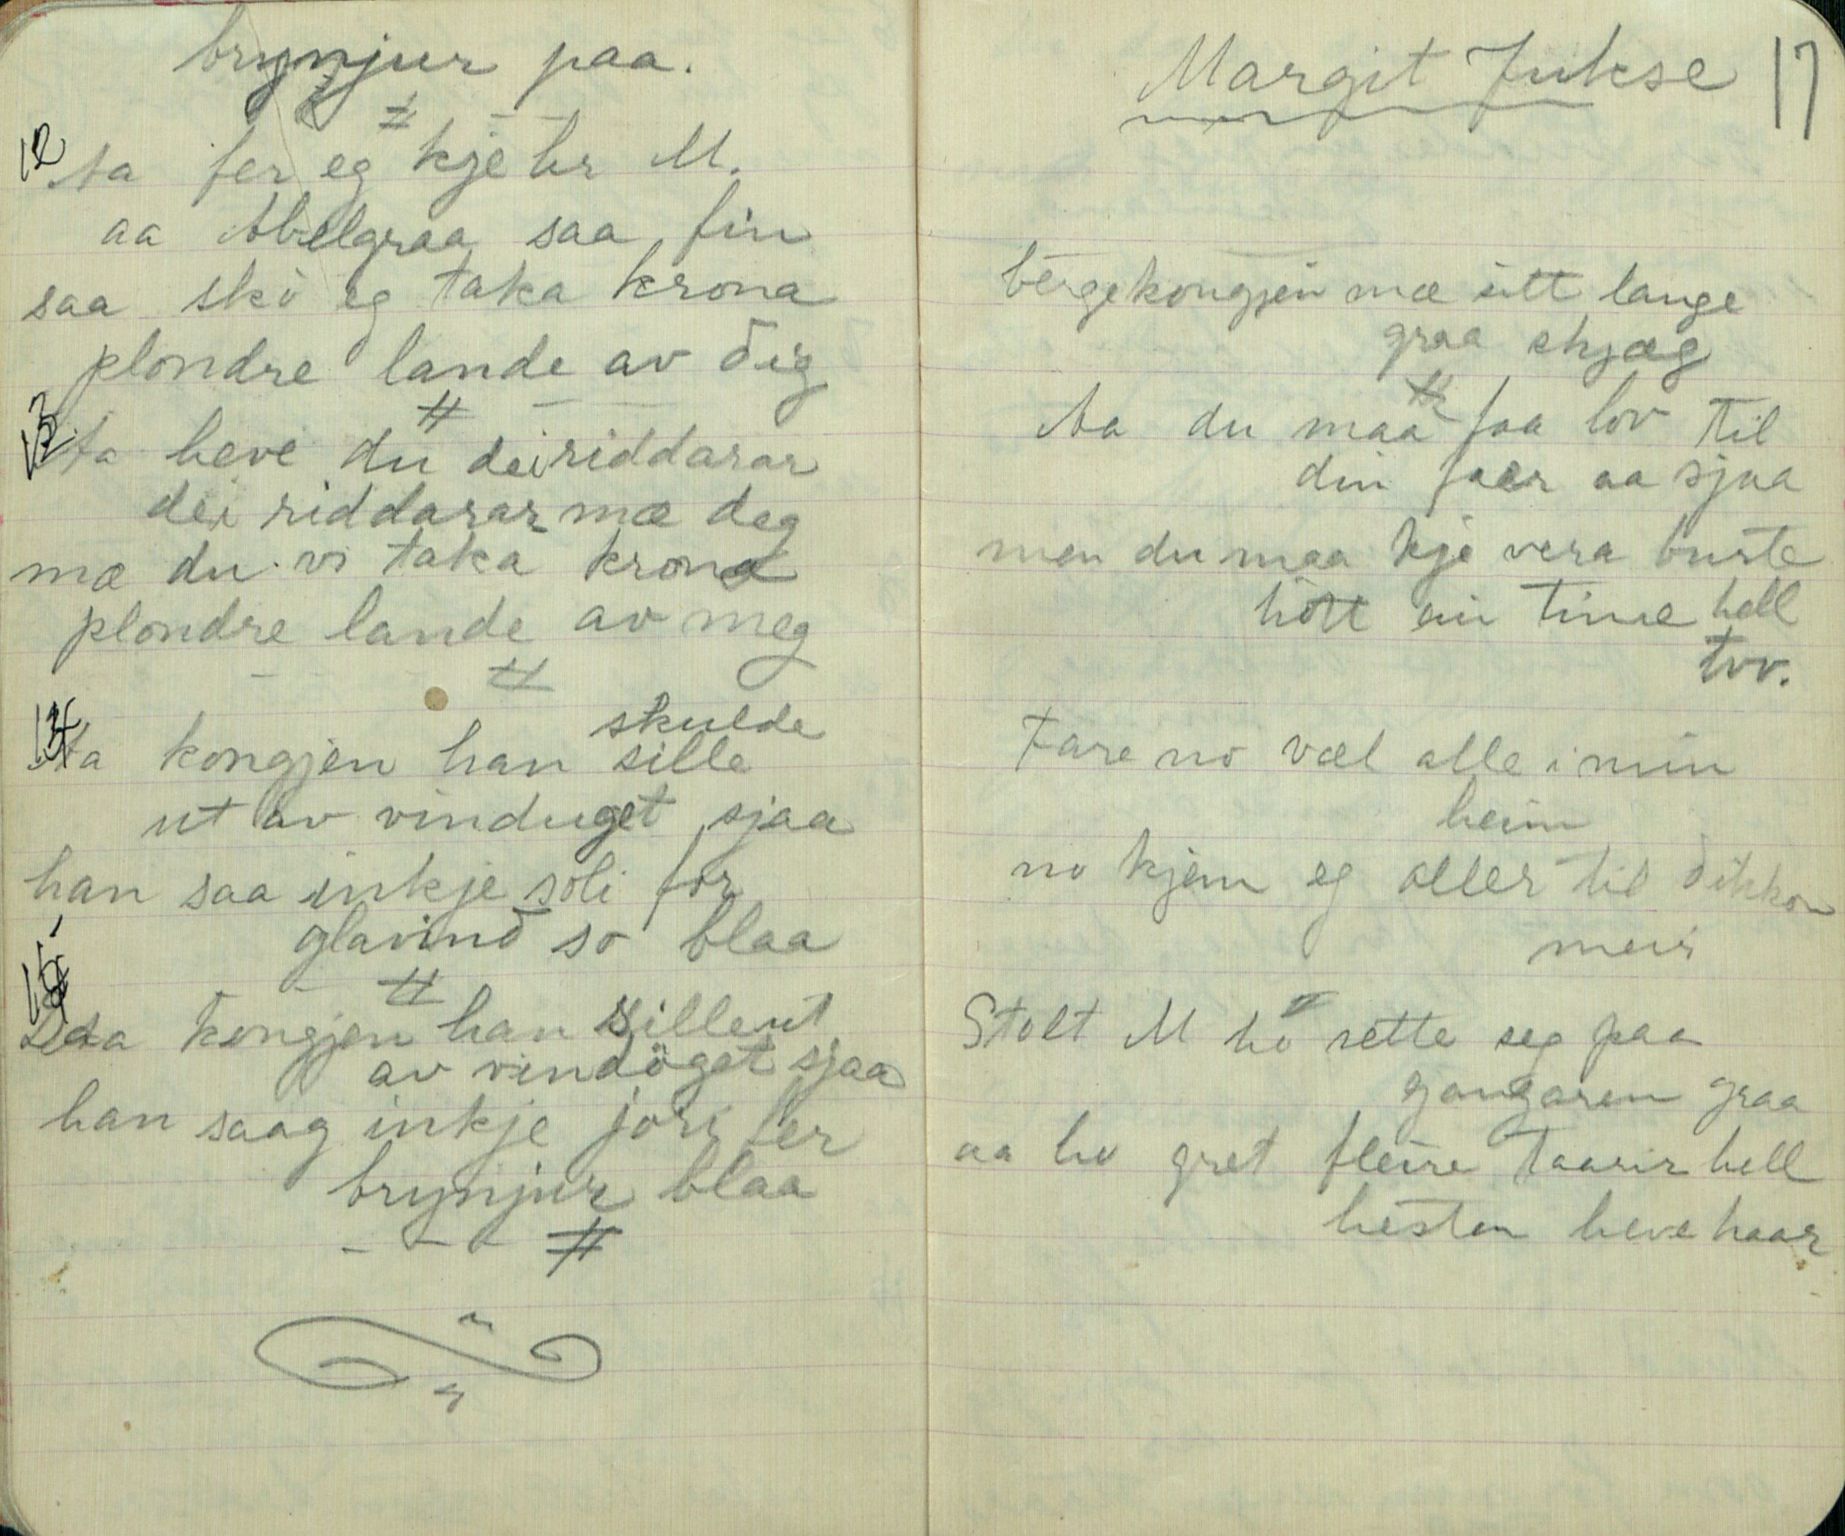 brynjur paa.
#
12 Aa fer eg kje hr M.
aa Abelgraa saa fin
saa sko eg taka krona
plondre lande av dig
#
13 Aa heve du dei riddarar
dei riddarar mæ deg
mæ du vi taka krona
plondre lande av meg
#
skulde
14 Aa kongjen han sille
ut av vinduget sjaa
han saa inkje soli for
glavind so blaa
#
15 Aa kongjen han sille ut
av vindöget sjaa
han saag inkje jori fer
brynjur blaa
#
Margit Jukse 17
bergekongjen mæ sitt lange
graa skjæg
#
Aa du maa faa lov til
din faer aa sjaa
men du maa kje vera burte
hott ein time hell
tvo.
Fare no væl alle i min
heim
no kjem eg aller til dikkon
meir
#
Stolt M ho sette seg paa
gangaren graa
aa ho gret fleire taarir hell
hesten heve haar